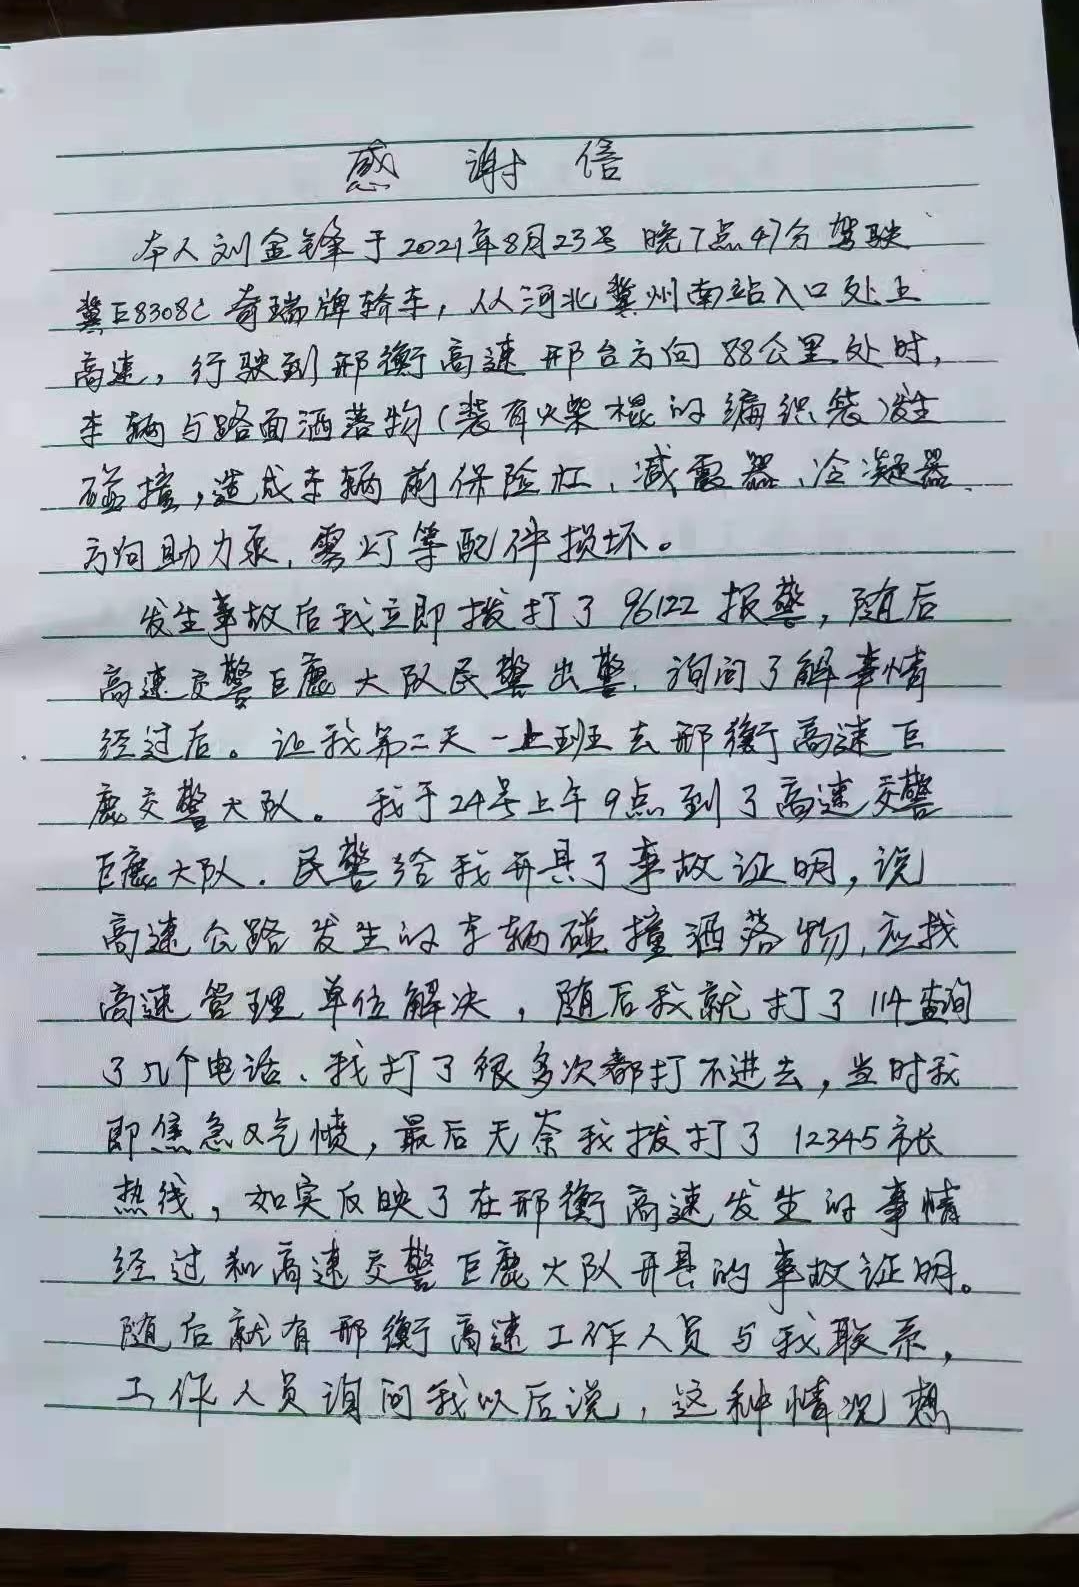 感谢信
本人刘金锋于2021年8月23号晚7点47分驾驶
冀E8308C奇瑞牌轿车，从河北冀州南站入口处上
高速，行驶到邢衡高速邢台方向88公里处时，
车辆与路面洒落物（装有火柴棍的编织袋）发生
碰撞，造成车辆前保险杠、减震器、冷凝器、
方向助力泵、雾灯等配件损坏。
发生事故后我立即拨打了96122报警，随后
高速交警巨鹿大队民警出警，询问了解事情
经过后。让我第二天一上班去邢衡高速巨
鹿交警大队。我于24号上午9点到了高速交警
巨鹿大队．民警给我开具了事故证明，说
高速公路发生的车辆碰撞洒落物，应找
高速管理单位解决，随后我就打了114查询
了几个电话、我打了很多次都打不进去，当时我
即焦急又气愤，最后无奈我拨打了12345市长
热线，如实反映了在邢衡高速发生的事情
经过和高速交警巨鹿大队开具的事故证明。
随后就有邢衡高速工作人员与我联系，
工作人员询问我以后说，这种情况想